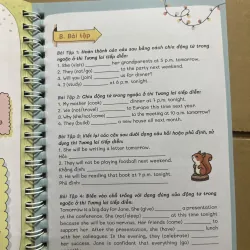 B. Bài tập
Bài Tập 1: Hoàn thành các câu sau bằng cách chia động từ trong
ngoặc ở thì Tương lai tiếp diễn:
1. She (visit) ________ her grandparents at 5 p.m. tomorrow.
2. They (not/go) ________ to the party next weekend.
3. Will you (join) ________ us for dinner?
4. He (not/eat) ________ at 6 p.m. tonight.
Bài Tập 2: Chia động từ trong ngoặc ở thì Tương lai tiếp diễn:
1. My mother (cook) ________ dinner at 7 p.m. tonight.
2. They (not/travel) ________ to Europe this time next year.
3. Why (she/not/come) ________ to the meeting at 10 a.m. tomorrow?
4. I (not/study) ________ for the exam tonight.
Bài Tập 3: Viết lại các câu sau dưới dạng câu hỏi hoặc phủ định, sử
dụng thì Tương lai tiếp diễn:
1. She will be writing a letter tomorrow.
Hỏi:
2. They will not be playing football next weekend.
Khẳng định:
3. He will be reading that book at 9 p.m. tonight.
Phủ định:
Bài Tập 4: Điền vào chỗ trống với dạng đúng của động từ trong
ngoặc ở thì Tương lai tiếp diễn:
Tomorrow is a big day for Jane. She (give) ________ a presentation
at the conference. She (not/sleep) ________ at
because she will be too nervous. Her friends (come) ________ to
support her. After the presentation, she (have) ________ dinner with
her
her success. Jane is confident that everything (go)